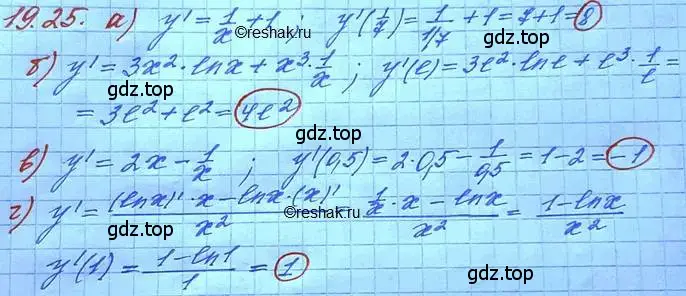 19.25. а) y' = 1/x + 1 ; y'(1/7) = 1/(1/7) + 1 = 7 + 1 = 8
©reshak.ru
гдз.top
б) y' = 3x² · lnx + x³ · 1/x ; y'(e) = 3e² · lne + e³ · 1/e =
= 3e² + e² = 4e²
гдз.top
в) y' = 2x - 1/x ; y'(0,5) = 2·0,5 - 1/0,5 = 1 - 2 = -1
г) y' = ((lnx)' · x - lnx · (x)')/x² = (1/x · x - lnx)/x² = (1 - lnx)/x²
©reshak.ru
гдз.top
y'(1) = (1 - ln1)/1 = 1
гдз.top